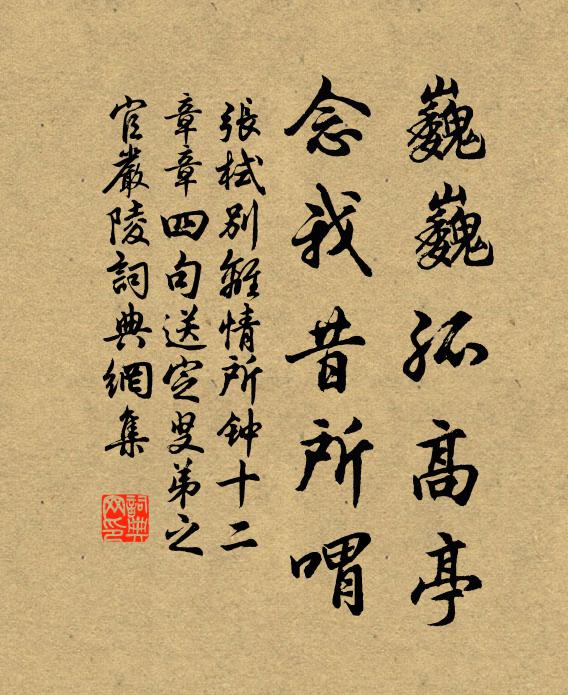 巍巍孤高亭
念我昔所喟
張栻別離情所钟十二
章章四句送定叟弟之
官嚴陵詞典網集
詞典网印